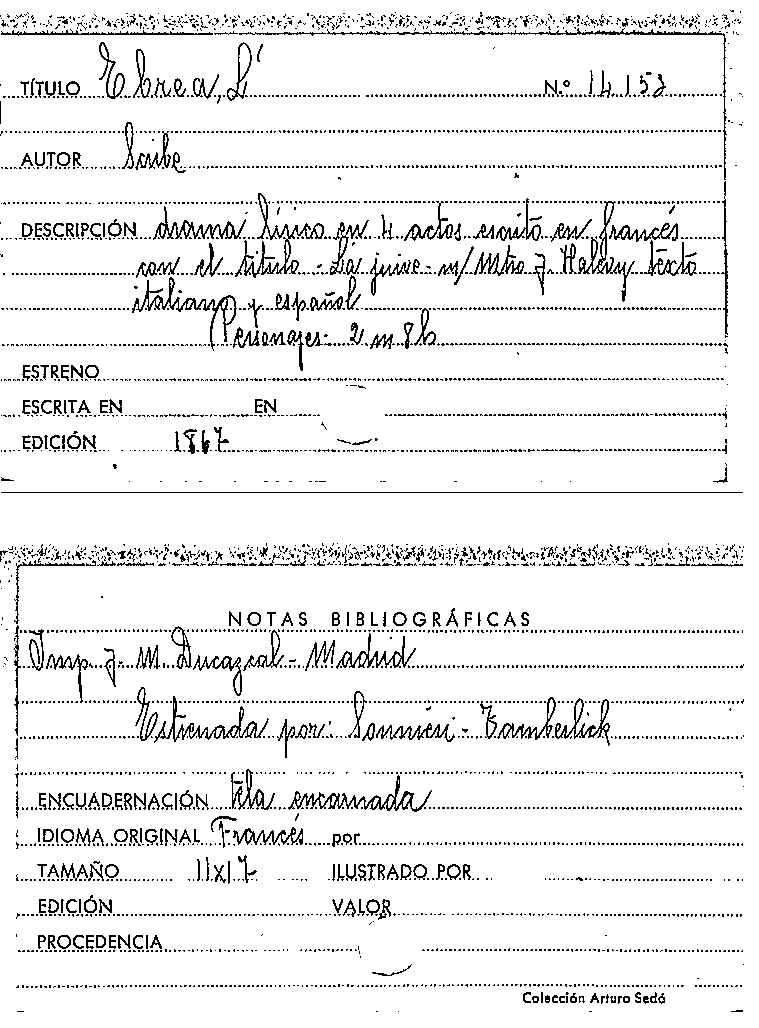 TÍTULO Ebrea, L' N.º 14.153
AUTOR Scribe
DESCRIPCIÓN drama lírico en 4 actos escrito en francés
con el título - La juive - m/ Mtro J. Halevy texto
italiano y español
(Personajes - 2 m 8 h
ESTRENO
ESCRITA EN EN
EDICIÓN 1867
NOTAS BIBLIOGRÁFICAS
Imp. J. M. Ducazcal - Madrid
Estrenada por: - Tamberlick
ENCUADERNACIÓN tela encarnada
IDIOMA ORIGINAL Francés por
TAMAÑO 11x17 ILUSTRADO POR
EDICIÓN VALOR
PROCEDENCIA
Colección Arturo Sedó